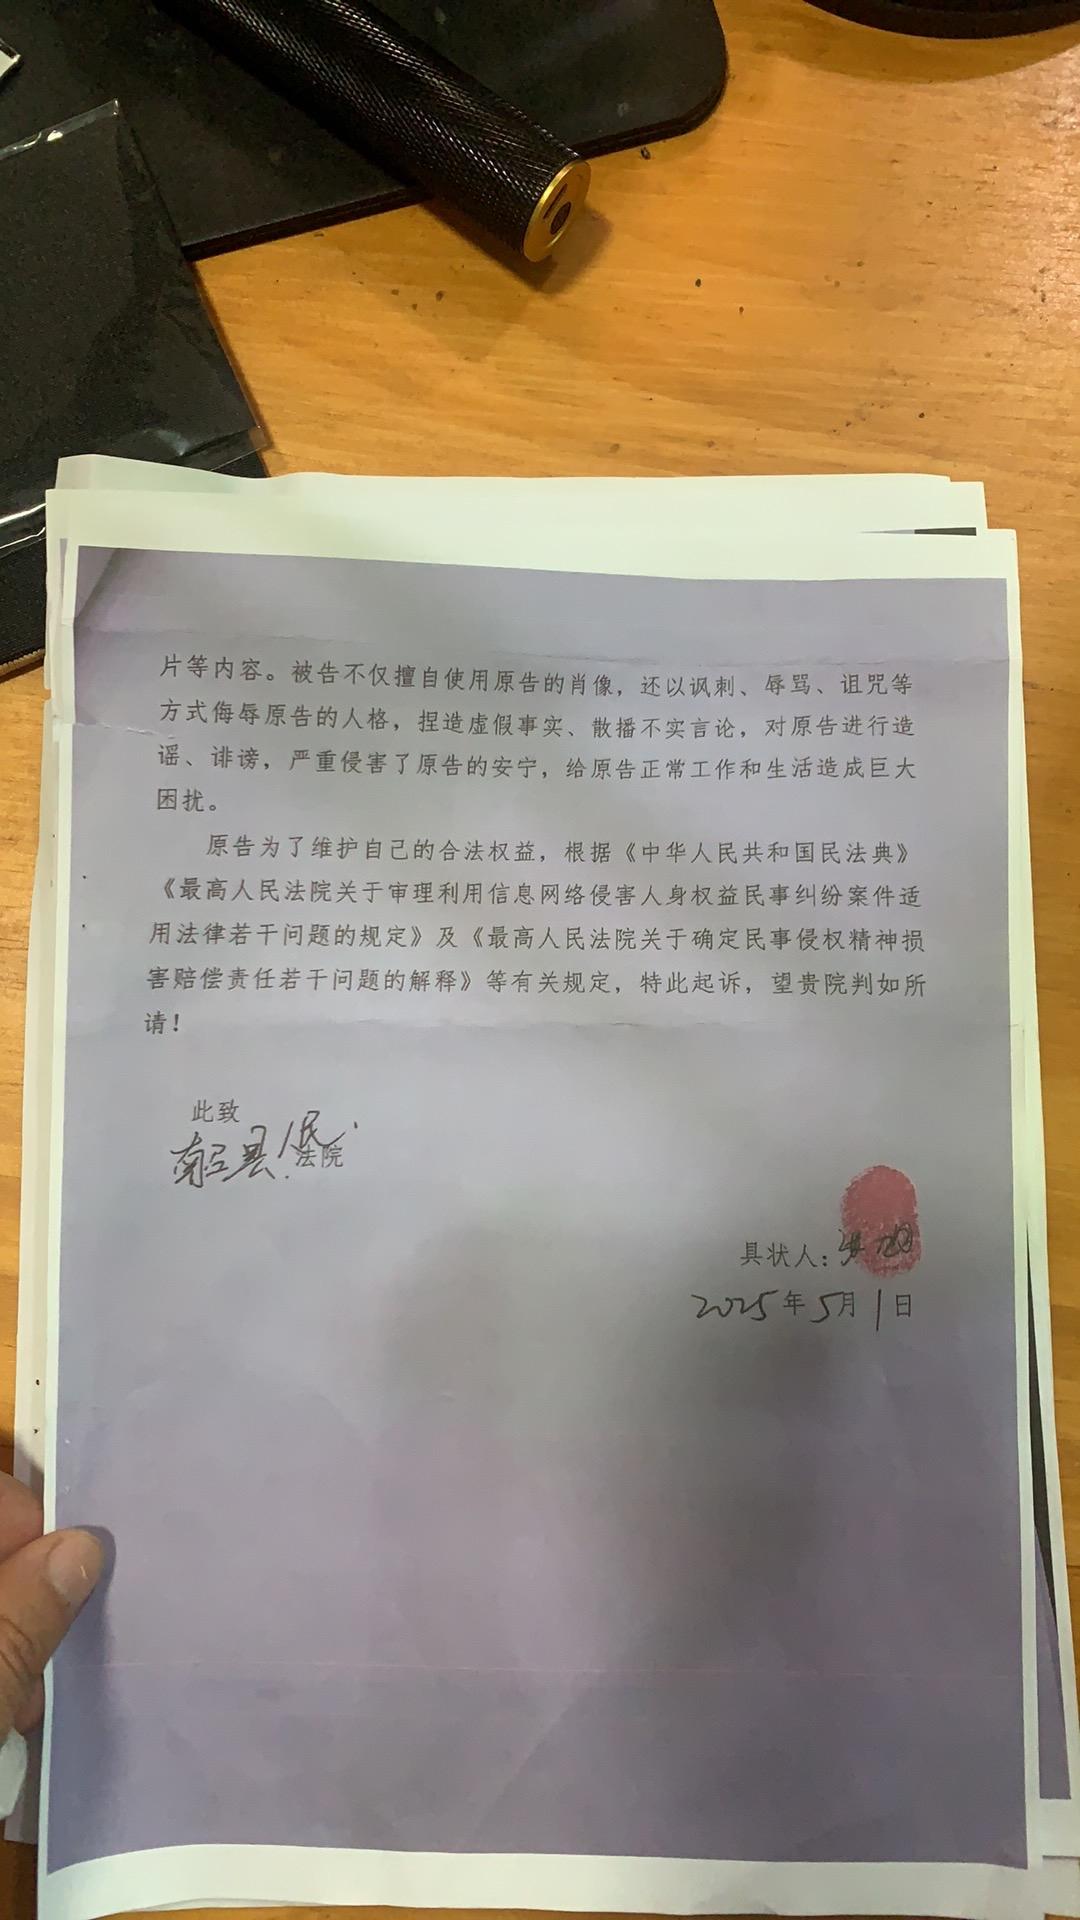 片等内容。被告不仅擅自使用原告的肖像，还以讽刺、辱骂、诅咒等
方式侮辱原告的人格，捏造虚假事实、散播不实言论，对原告进行造
谣、诽谤，严重侵害了原告的安宁，给原告正常工作和生活造成巨大
困扰。
原告为了维护自己的合法权益，根据《中华人民共和国民法典》
《最高人民法院关于审理利用信息网络侵害人身权益民事纠纷案件适
用法律若干问题的规定》及《最高人民法院关于确定民事侵权精神损
害赔偿责任若干问题的解释》等有关规定，特此起诉，望贵院判如所
请！
此致
县人民法院
具状人：
2025年5月1日